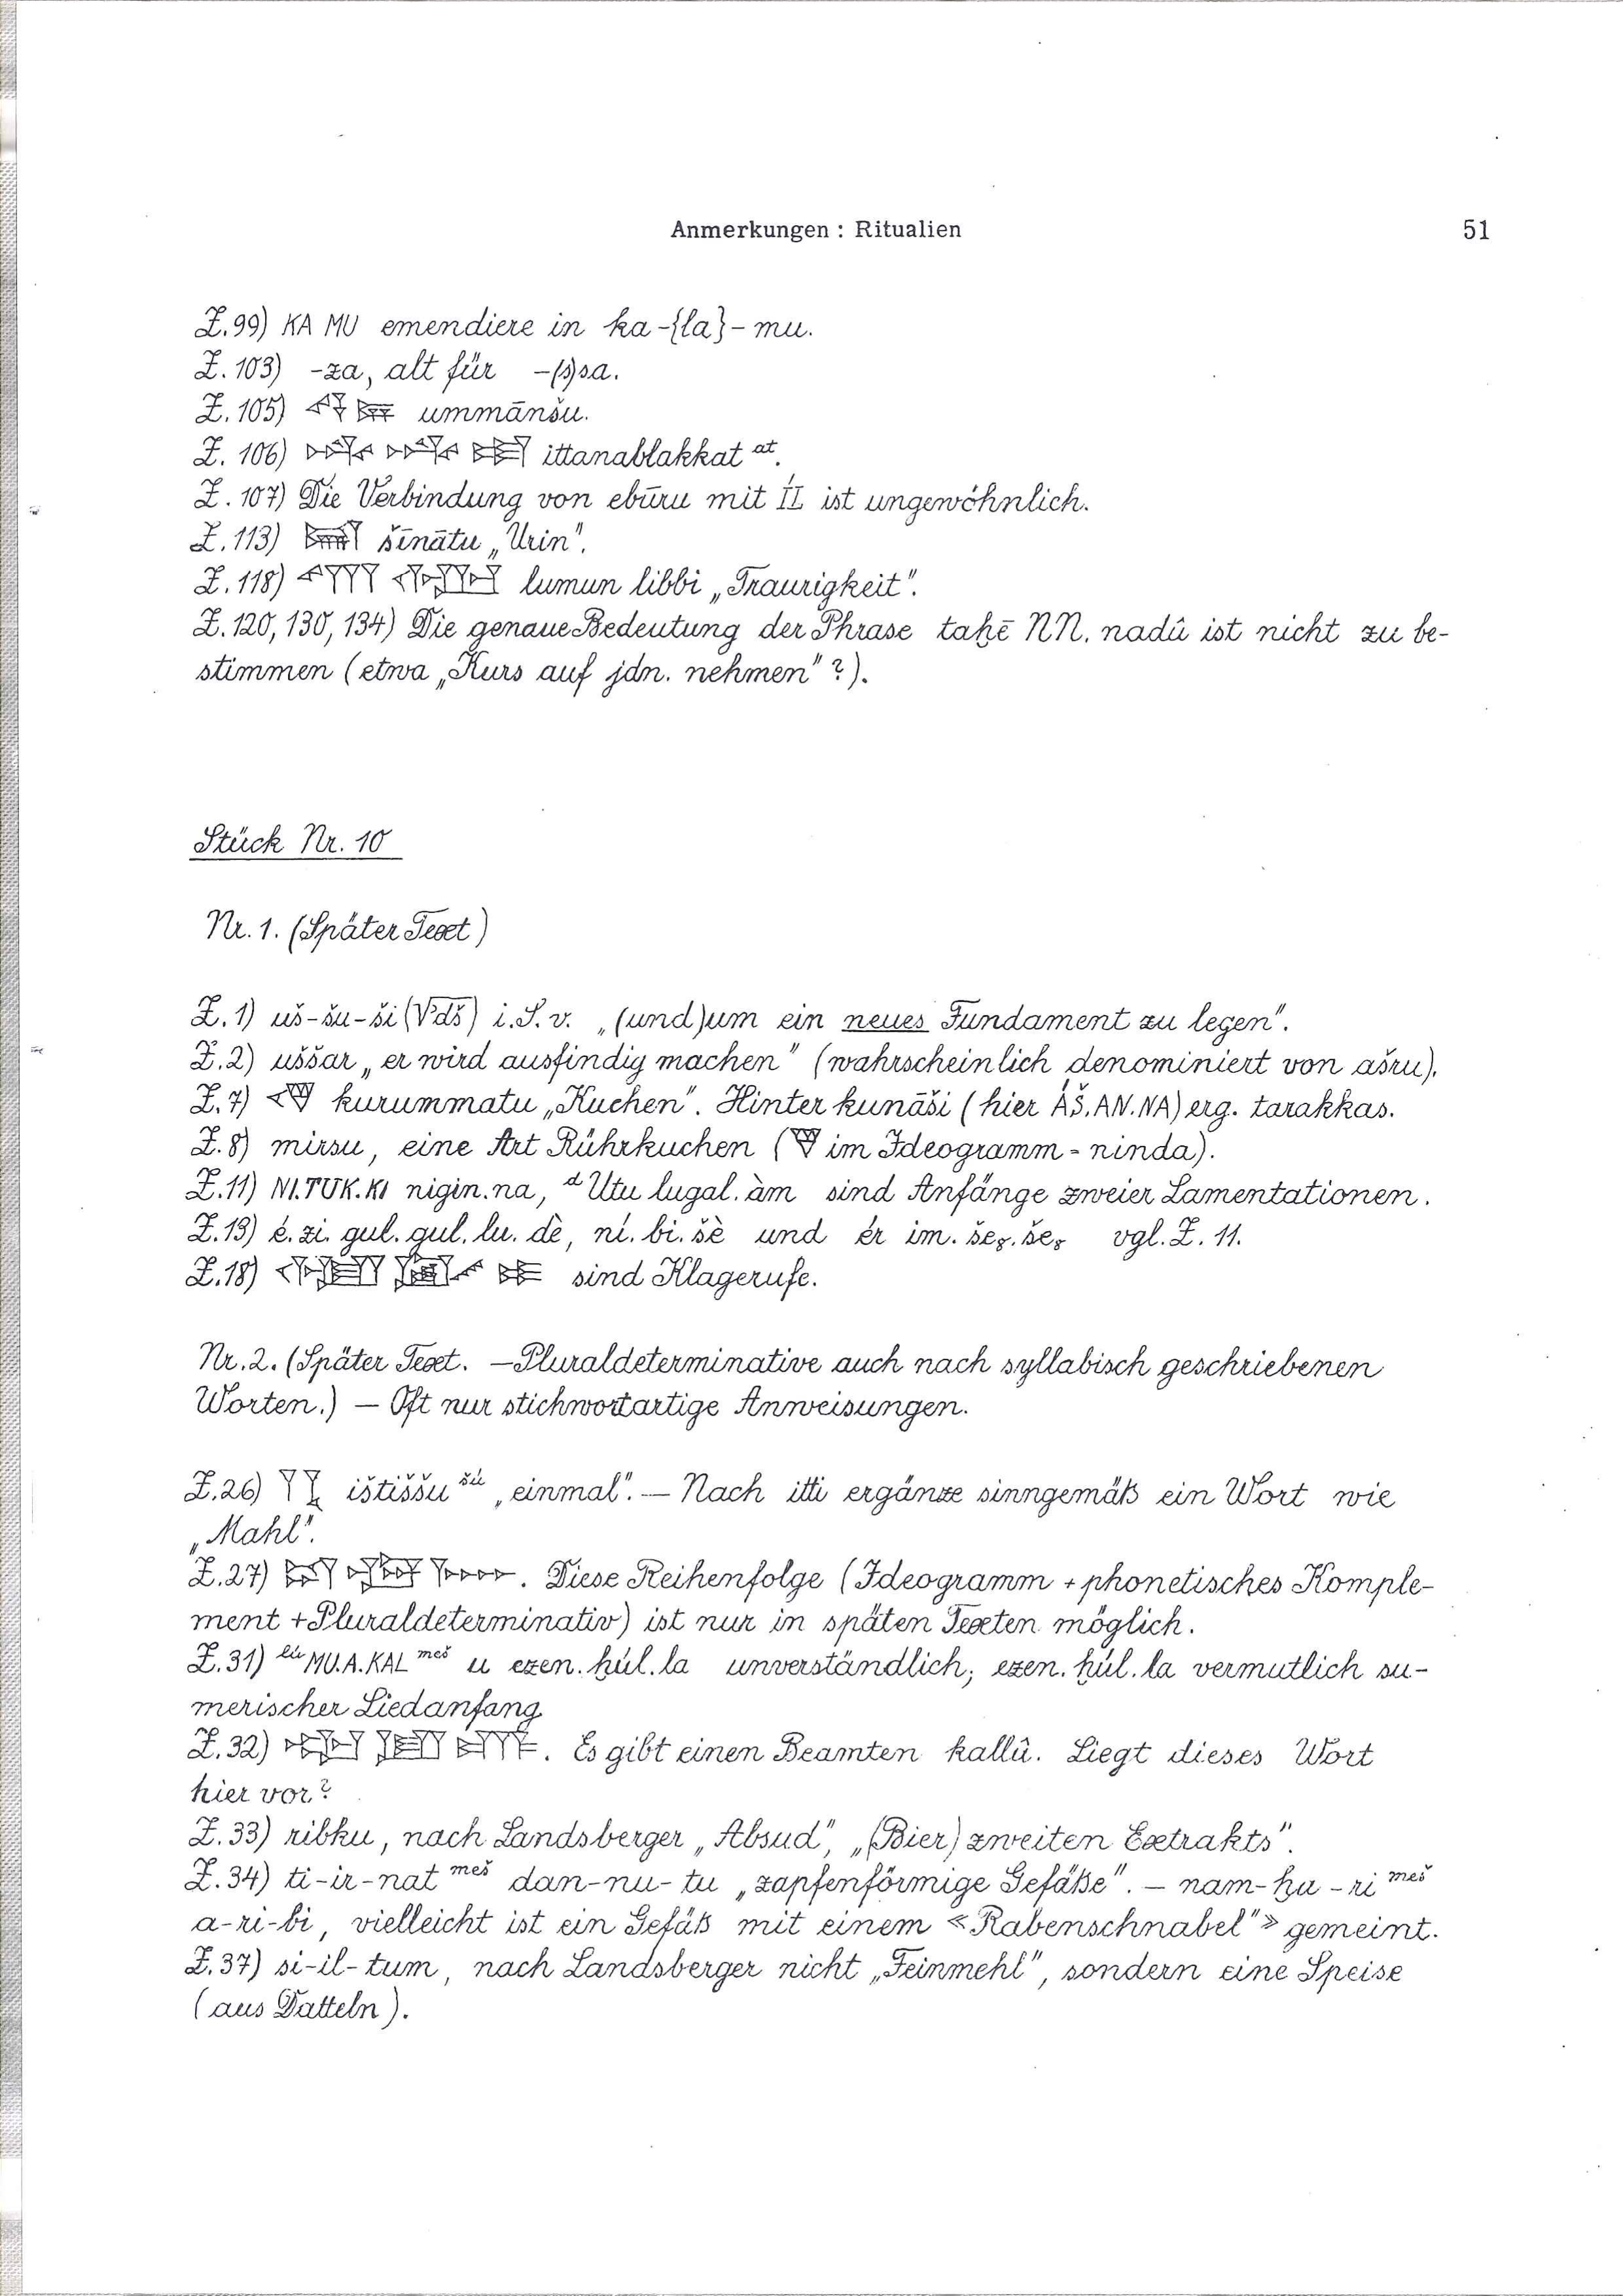 Anmerkungen : Ritualien 51
Z.99) KA MU emendiere in ka-{la}-mu.
Z.103) -za, alt für -(s)sa.
Z.105) ummānšu.
Z.106) ittanablakkat ᵃᵗ.
Z.107) Die Verbindung von ebūru mit ÍL ist ungewöhnlich.
Z.113) šīnātu „Urin".
Z.118) lumun libbi „Traurigkeit".
Z.120,130,134) Die genaue Bedeutung der Phrase taḫē NN. nadû ist nicht zu be-
stimmen (etwa „Kurs auf jdn. nehmen"?).
Stück Nr. 10
Nr.1. (Später Text)
Z.1) uš-šu-ši (√dš) i.S.v. „(und)um ein neues Fundament zu legen".
Z.2) uššar „er wird ausfindig machen" (wahrscheinlich denominiert von ašru).
Z.7) kurummatu „Kuchen". Hinter kunāši (hier ÁŠ.AN.NA) erg. tarakkas.
Z.8) mirsu, eine Art Rührkuchen ( im Ideogramm = ninda).
Z.11) NI.TUK.KI nigin.na, ᵈUtu lugal.àm sind Anfänge zweier Lamentationen.
Z.13) é.zi.gul.gul.lu.dè, ní.bi.šè und ér im.šeₓ.šeₓ vgl. Z.11.
Z.18) sind Klagerufe.
Nr.2. (Später Text. – Pluraldeterminative auch nach syllabisch geschriebenen
Worten.) – Oft nur stichwortartige Anweisungen.
Z.26) ištiššu ˢᵘ „einmal". – Nach itti ergänze sinngemäß ein Wort wie
„Mahl".
Z.27) . Diese Reihenfolge (Ideogramm + phonetisches Komple-
ment + Pluraldeterminativ) ist nur in späten Texten möglich.
Z.31) ˡúMU.A.KAL ᵐᵉš u ezen.ḫúl.la unverständlich; ezen.ḫúl.la vermutlich su-
merischer Liedanfang
Z.32) . Es gibt einen Beamten kallû. Liegt dieses Wort
hier vor?
Z.33) ribku, nach Landsberger „Absud", „(Bier) zweiten Extrakts".
Z.34) ti-ir-nat ᵐᵉš dan-nu-tu „zapfenförmige Gefäße". – nam-ḫa-ri ᵐᵉš
a-ri-bi, vielleicht ist ein Gefäß mit einem «Rabenschnabel"» gemeint.
Z.37) si-il-tum, nach Landsberger nicht „Feinmehl", sondern eine Speise
(aus Datteln).